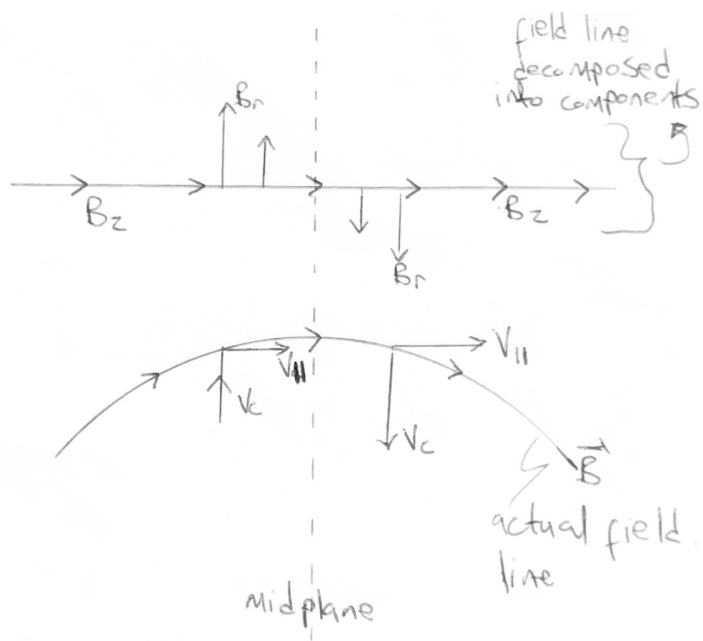 field line
decomposed
into components
Br
Bz
Bz
Br
V||
V||
Vc
Vc
B
actual field
line
midplane